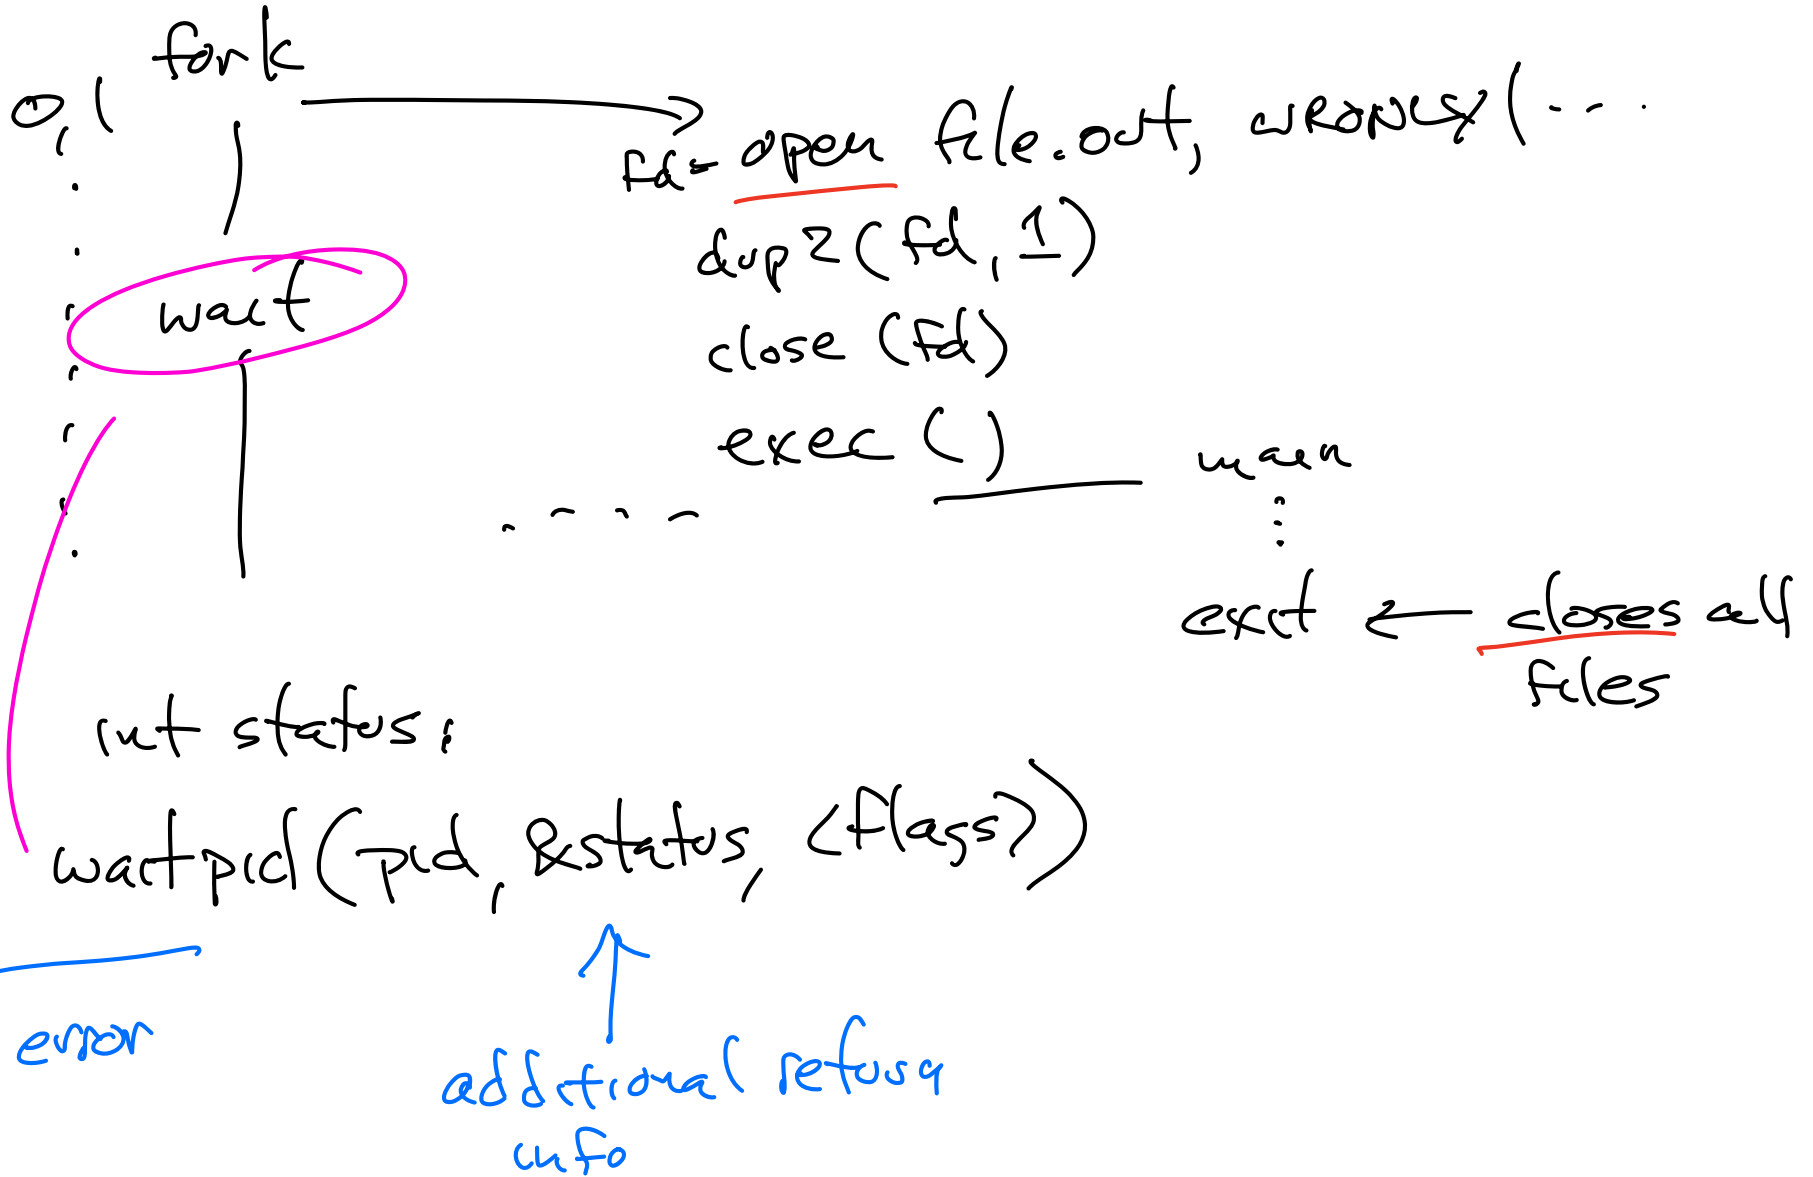 fork
0, 1
fd = open file.out, WRONLY | ...
dup2(fd, 1)
wait
close (fd)
exec ()
main
exit ← closes all
files
int status;
waitpid(pid, &status, <flags>)
error
additional return
info